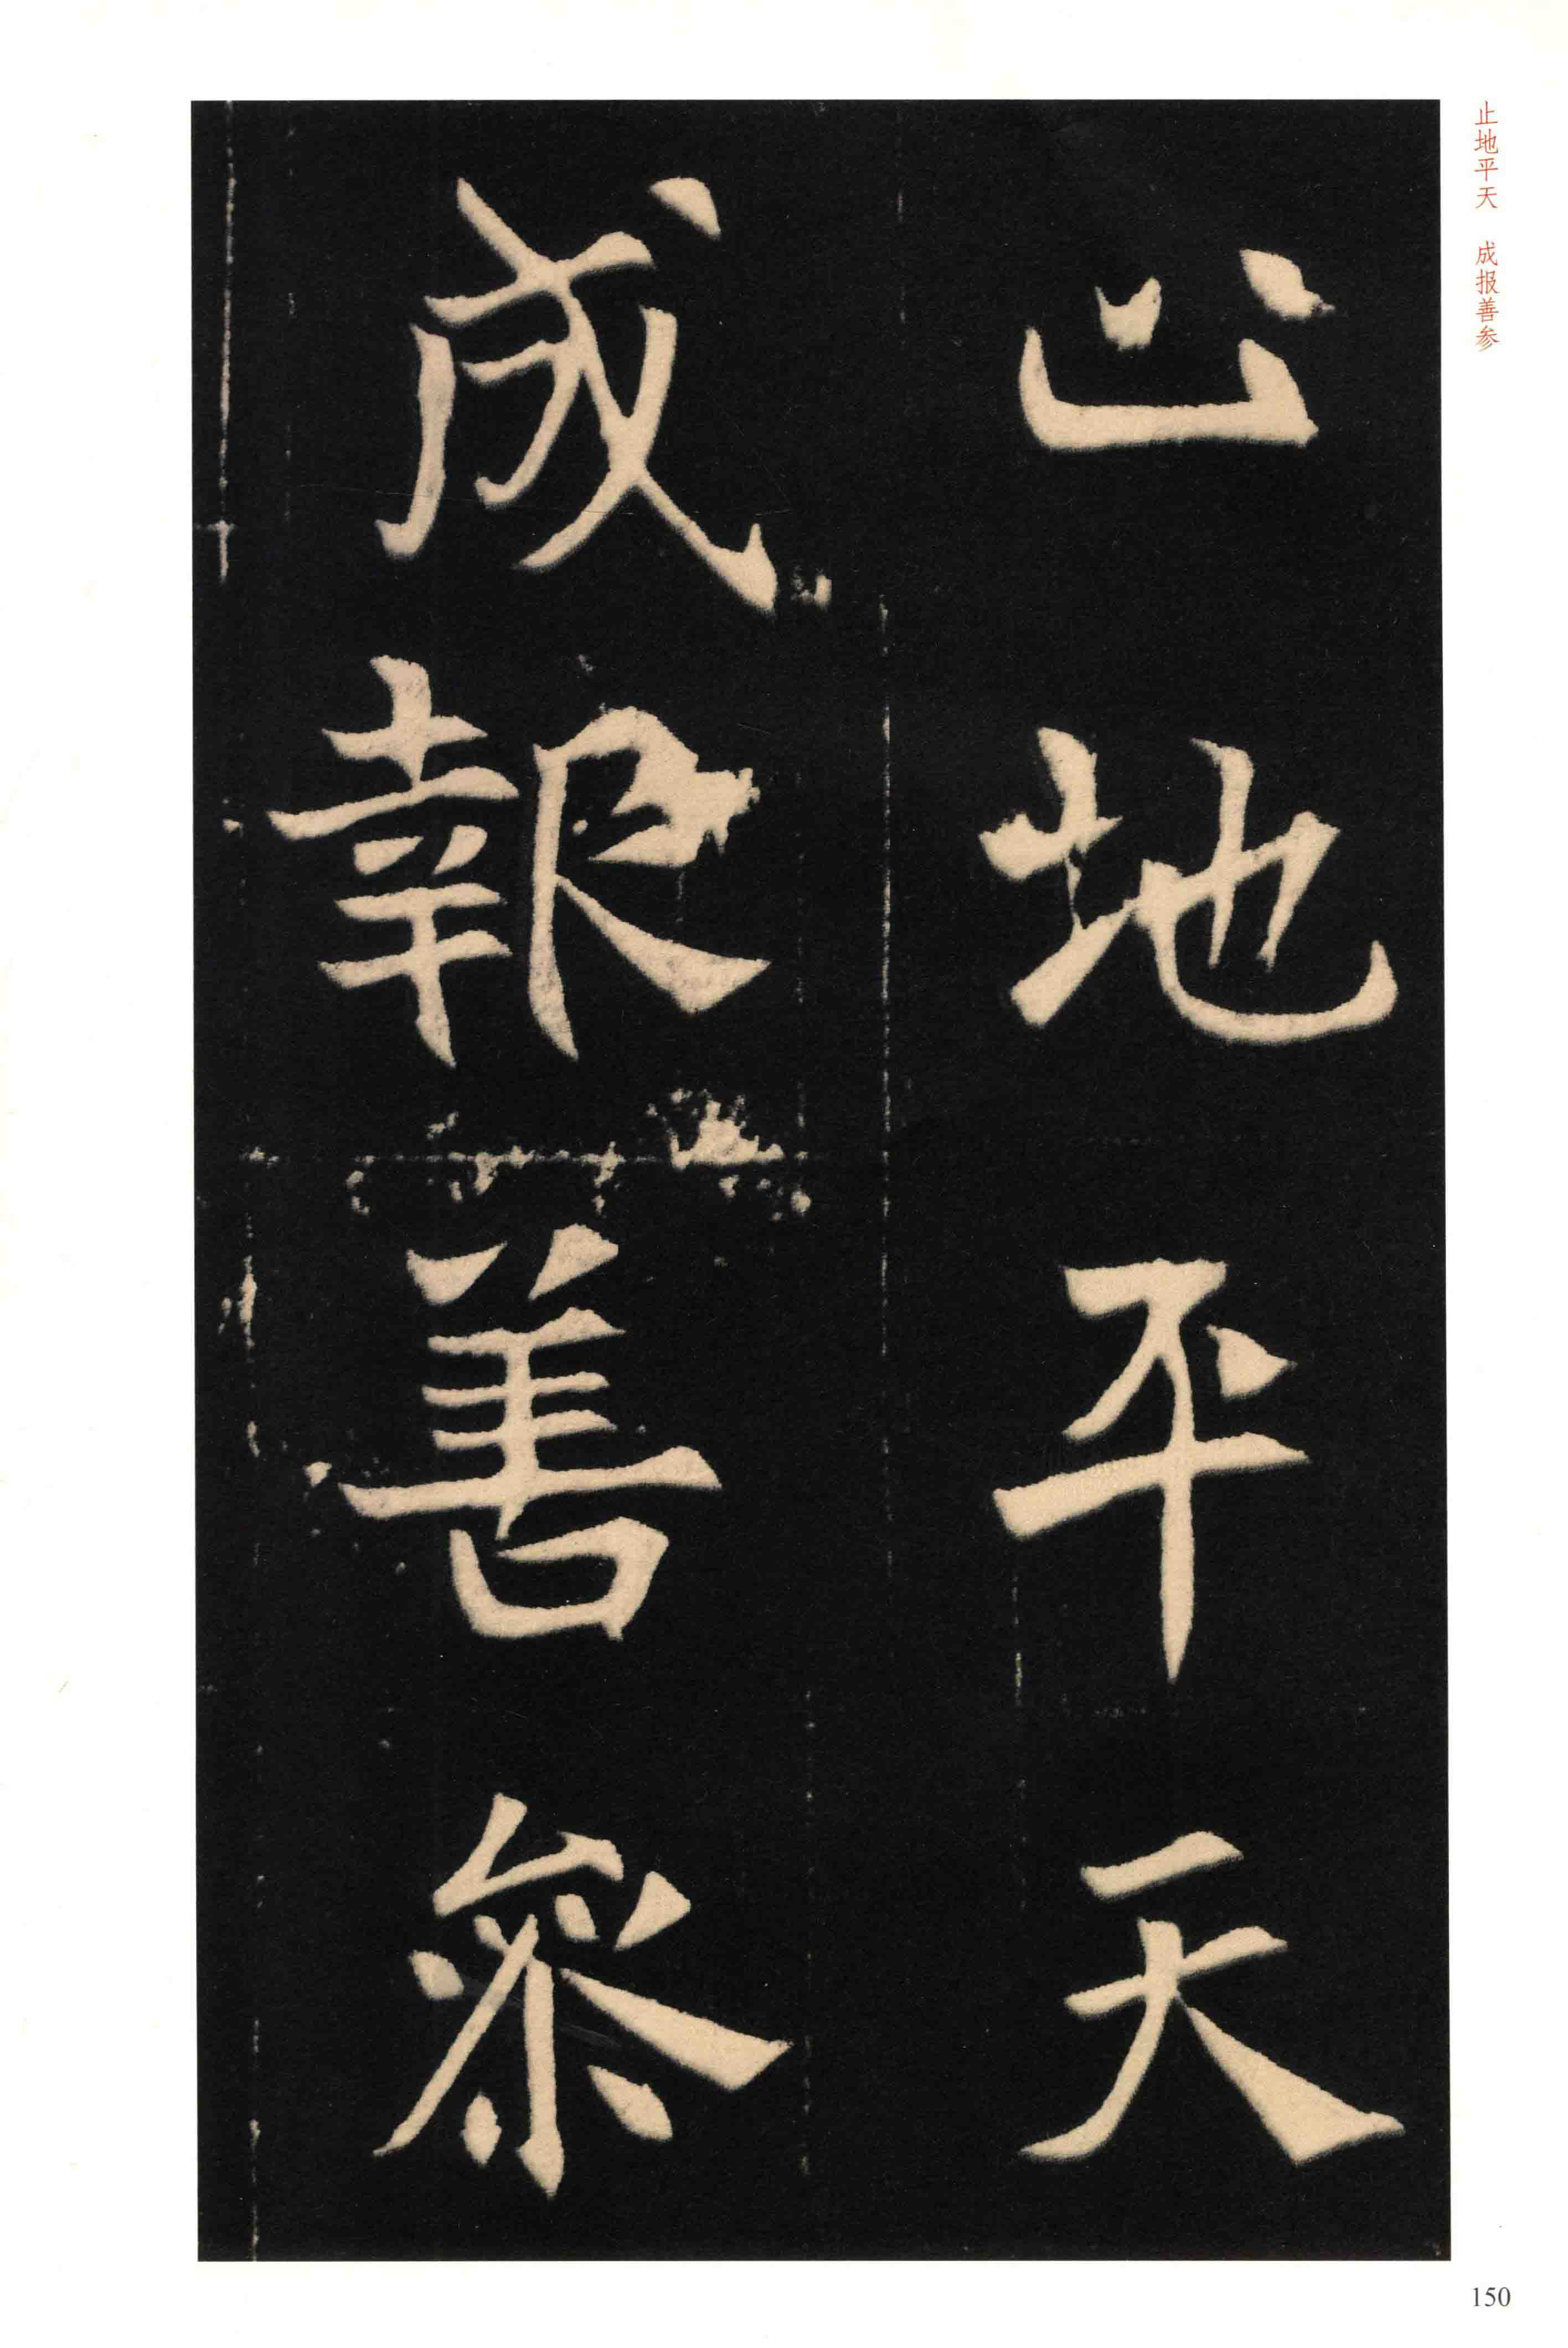 止地平天 成报善参
止地平天
成報善叅
150